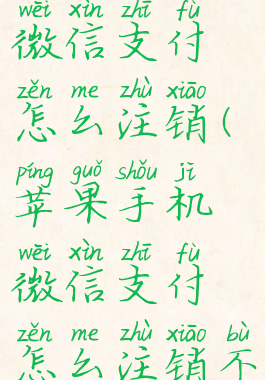 wēi xìn zhī fù
微信支付
zěn me zhù xiāo
怎么注销(
píng guǒ shǒu jī
苹果手机
wēi xìn zhī fù
微信支付
zěn me zhù xiāo bù
怎么注销不